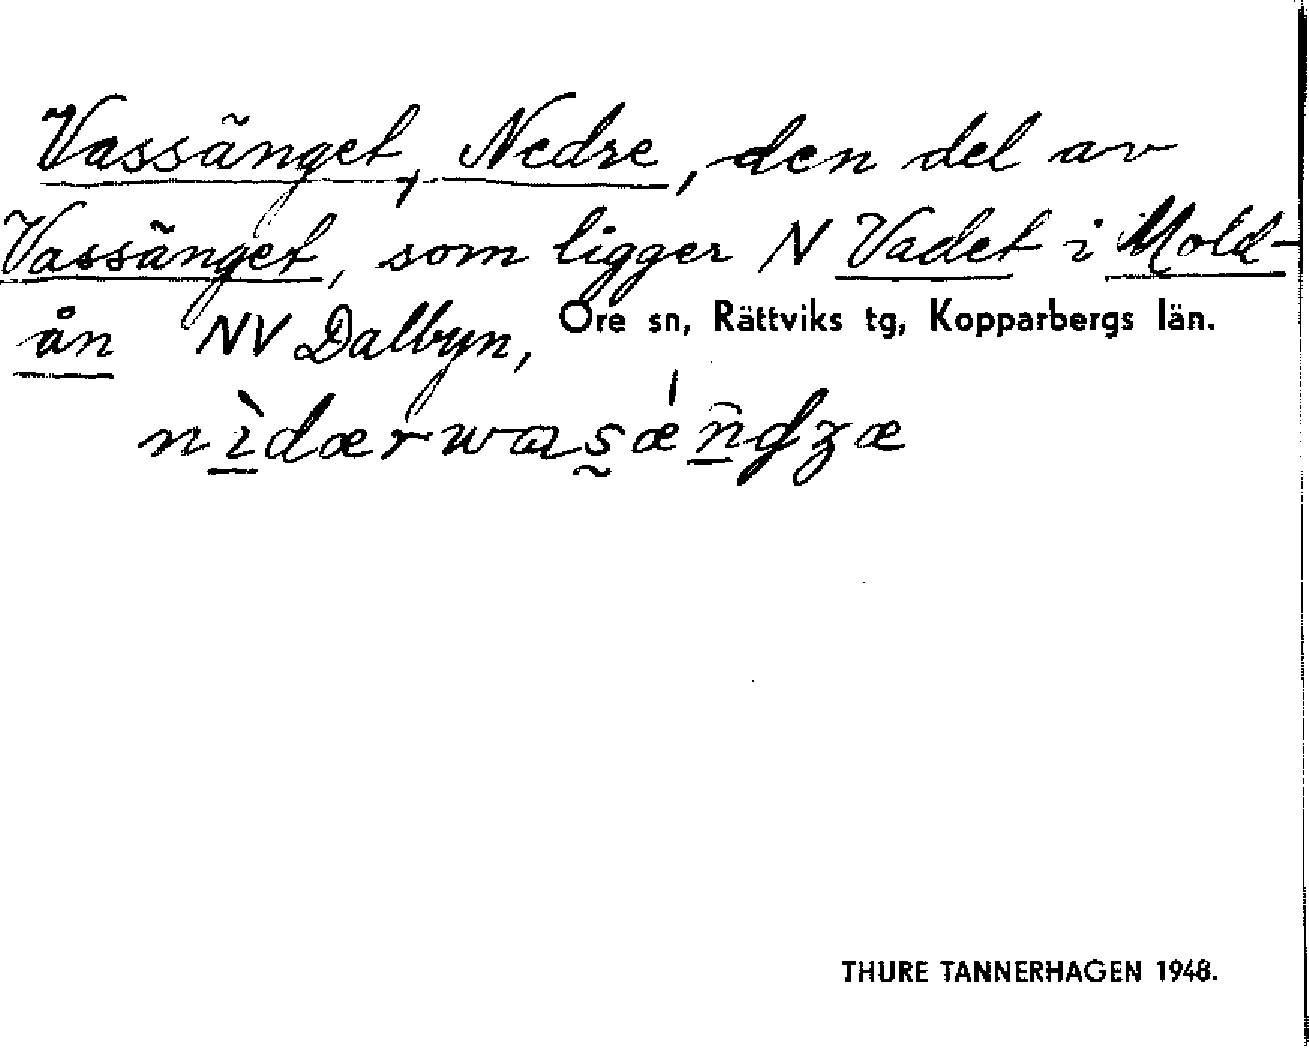 Vassänget, Nedre, den del av
Vassänget, som ligger N Vadet i Mold-
ån NV Dalbyn, Ore sn, Rättviks tg, Kopparbergs län.
THURE TANNERHAGEN 1948.